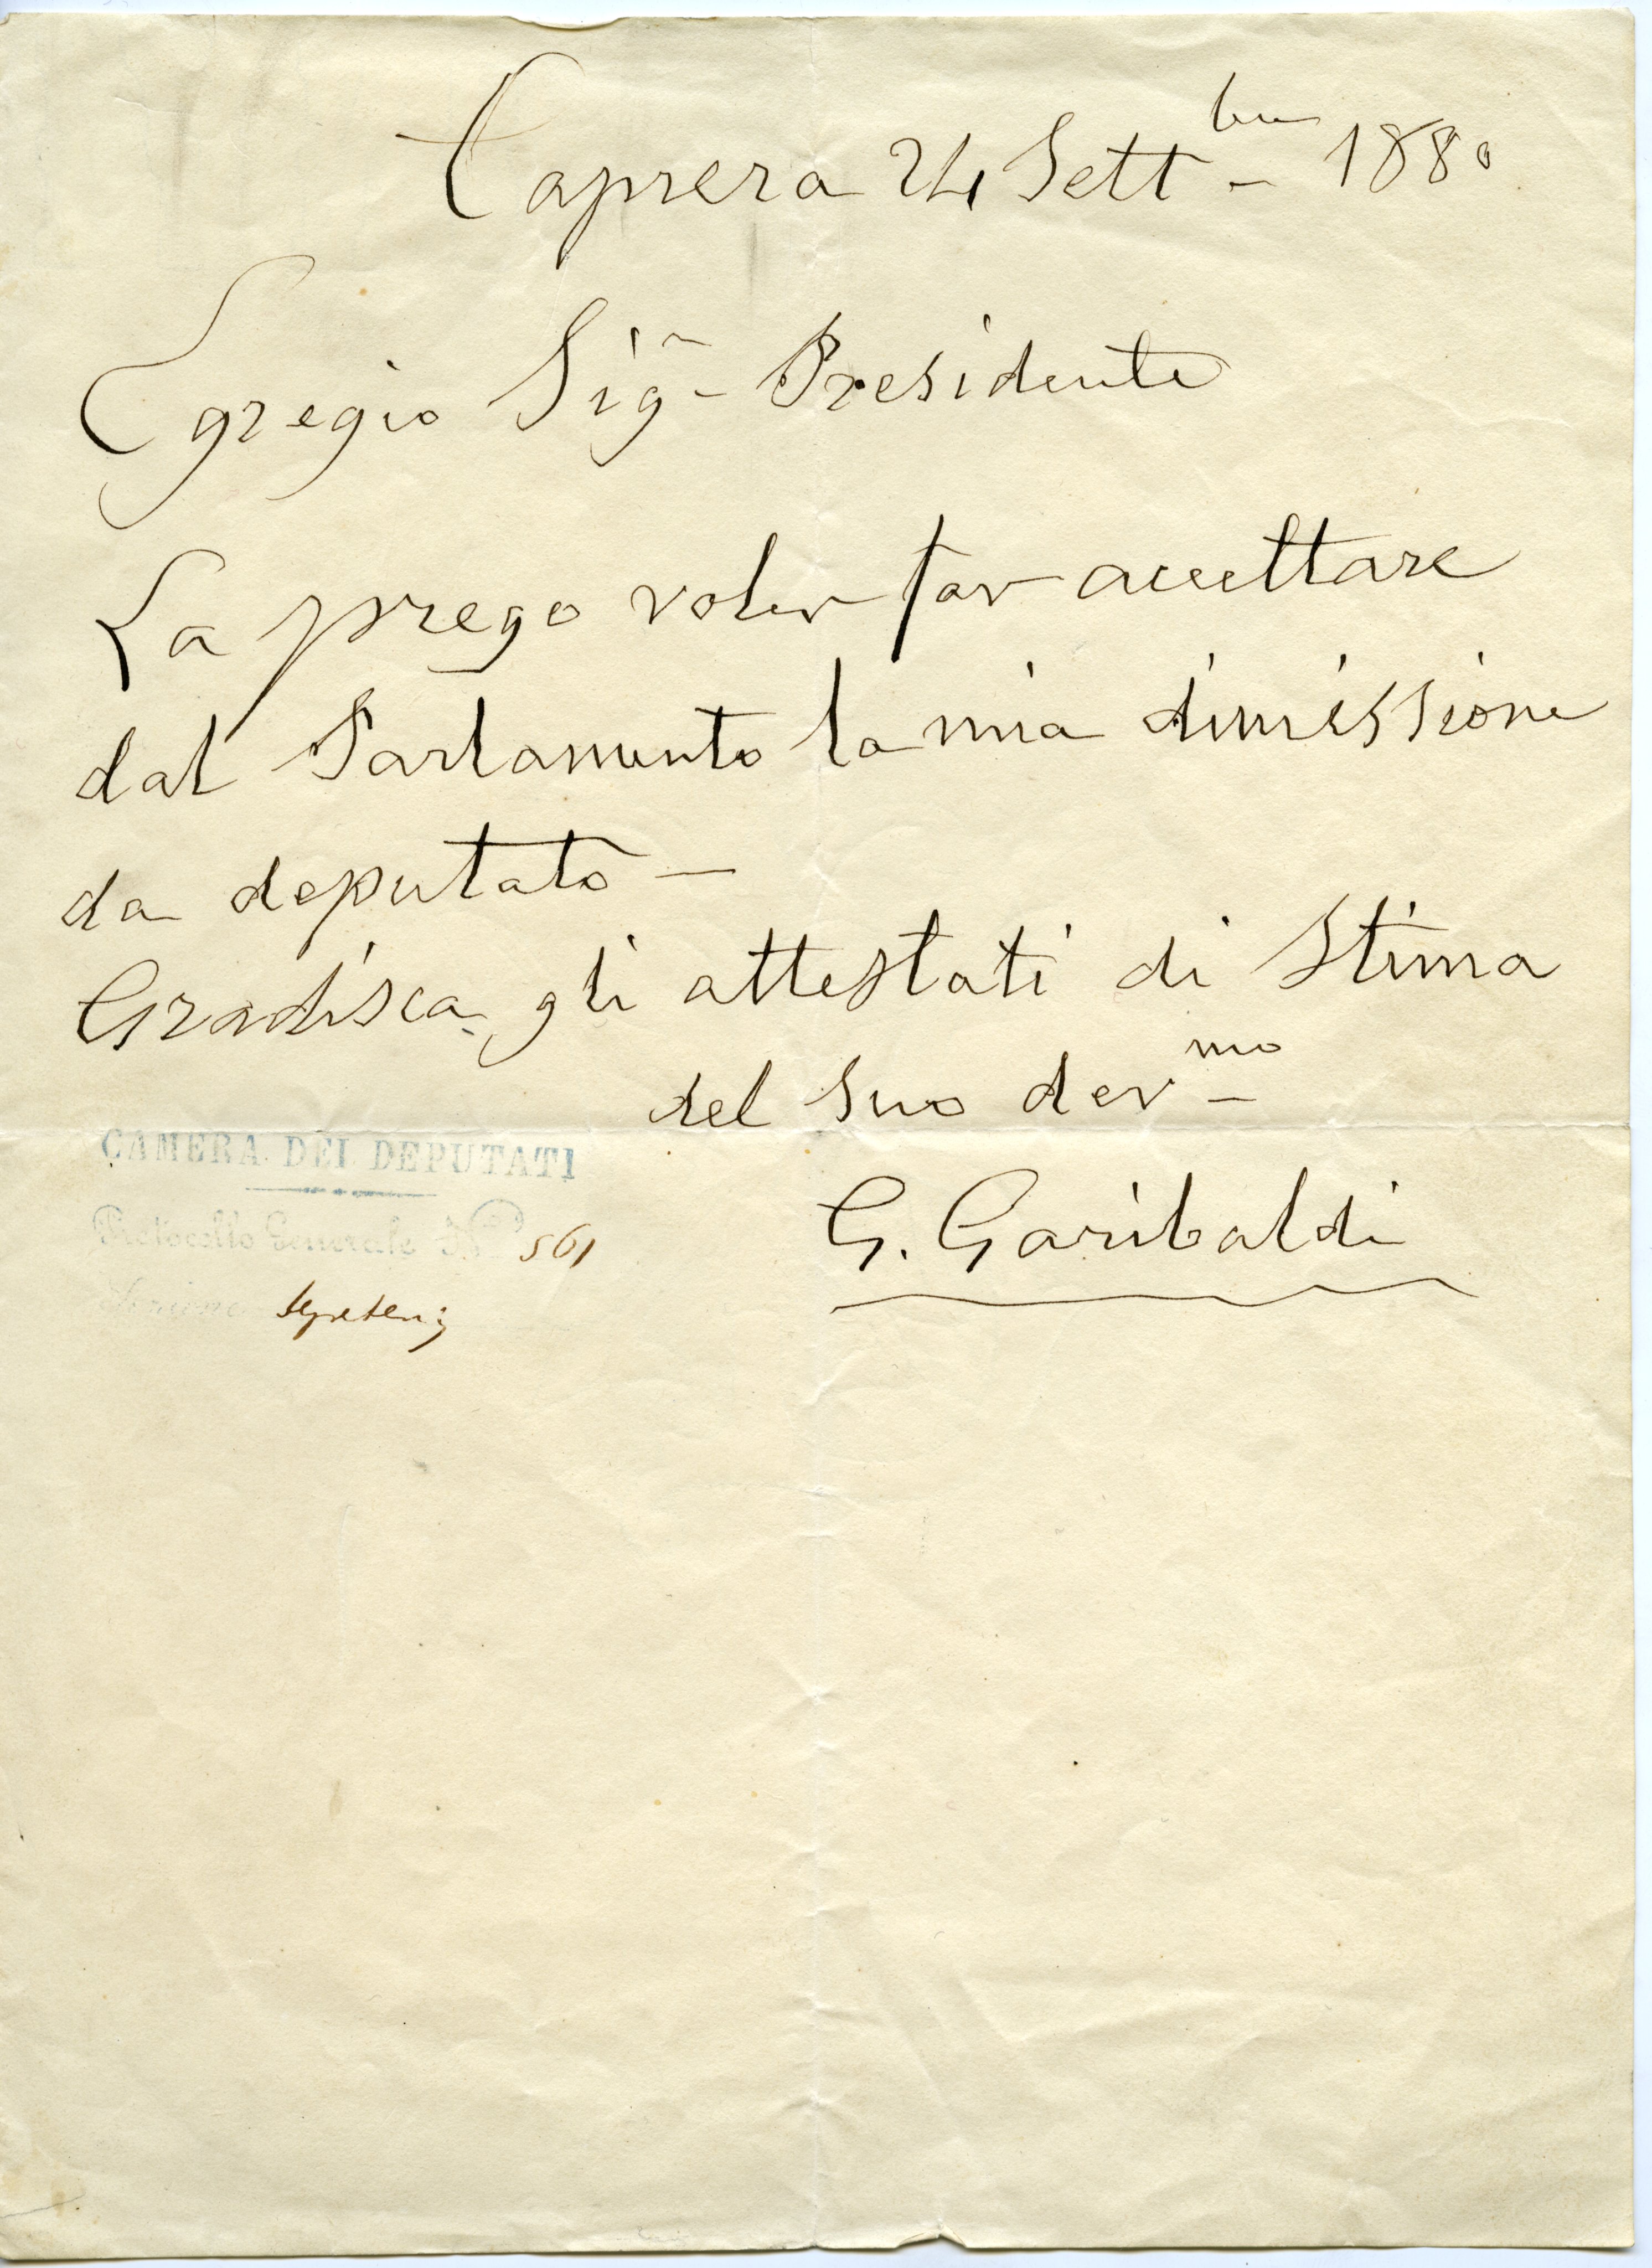 Caprera 24 Sett^bre 1880
Egregio Sig^r Presidente
La prego voler far accettare
dal Parlamento la mia dimissione
da deputato —
Gradisca gli attestati di stima
del suo dev^mo
G. Garibaldi
CAMERA DEI DEPUTATI
Protocollo Generale N° 561